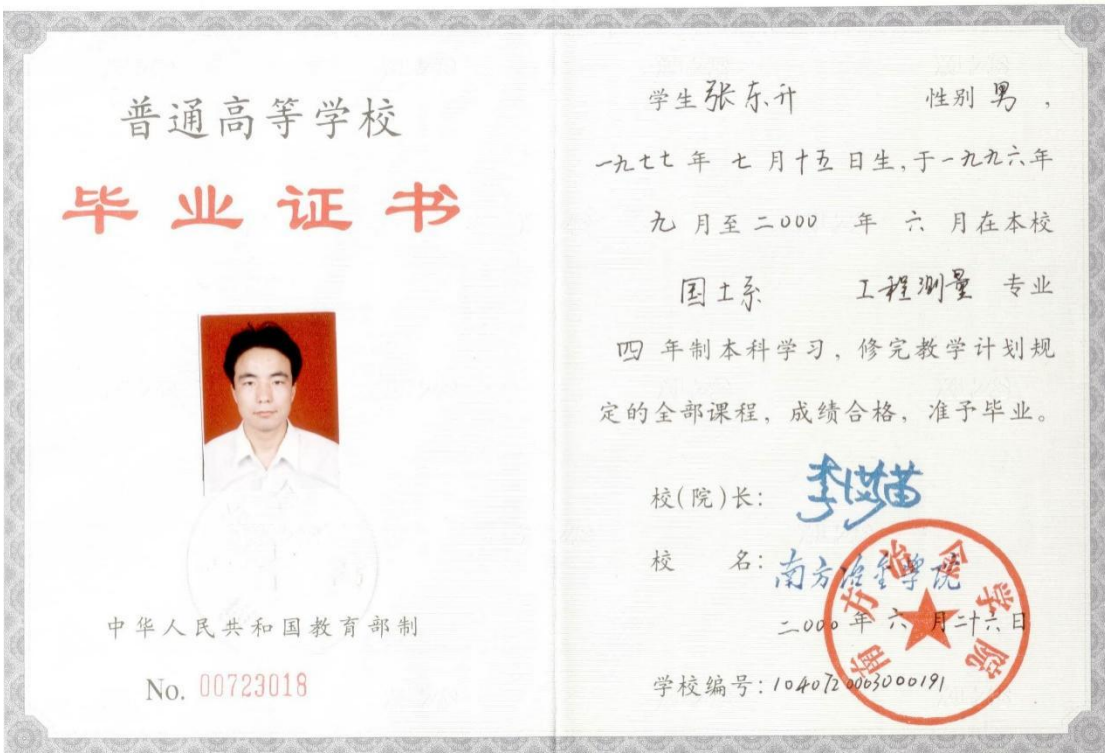 普通高等学校
毕业证书
中华人民共和国教育部制
No. 00723018
学生张东升 性别 男 ,
一九七七 年 七 月十五 日生,于一九九六年
九 月至二000 年 六 月在本校
国土系 工程测量 专业
四 年制本科学习, 修完教学计划规
定的全部课程, 成绩合格, 准予毕业。
校(院)长:
校 名: 南方冶金学院
二000 年 六 月二十六日
学校编号: 1040720003000191
南方冶金学院